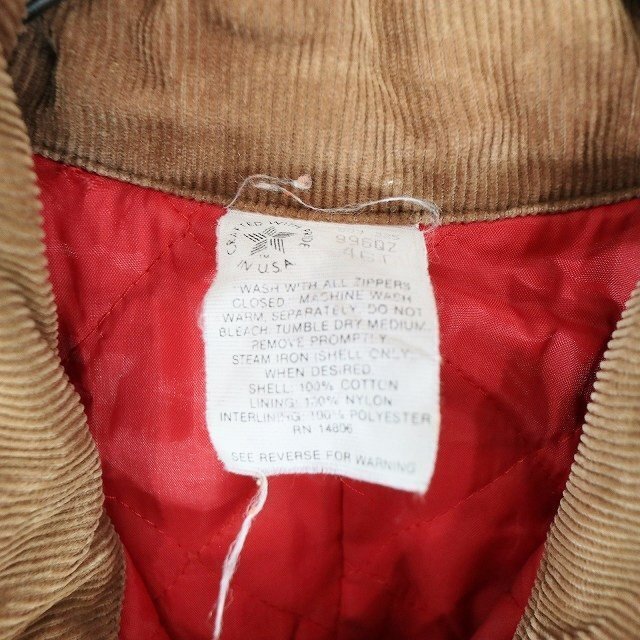 CRAFTED WITH PRIDE
IN U.S.A.
99607
WASH WITH ALL ZIPPERS
CLOSED. MACHINE WASH
WARM, SEPARATELY. DO NOT
BLEACH. TUMBLE DRY MEDIUM.
REMOVE PROMPTLY.
STEAM IRON (SHELL ONLY)
WHEN DESIRED
SHELL: 100% COTTON
LINING: 100% NYLON
INTERLINING: 100% POLYESTER
RN 14806
SEE REVERSE FOR WARNING